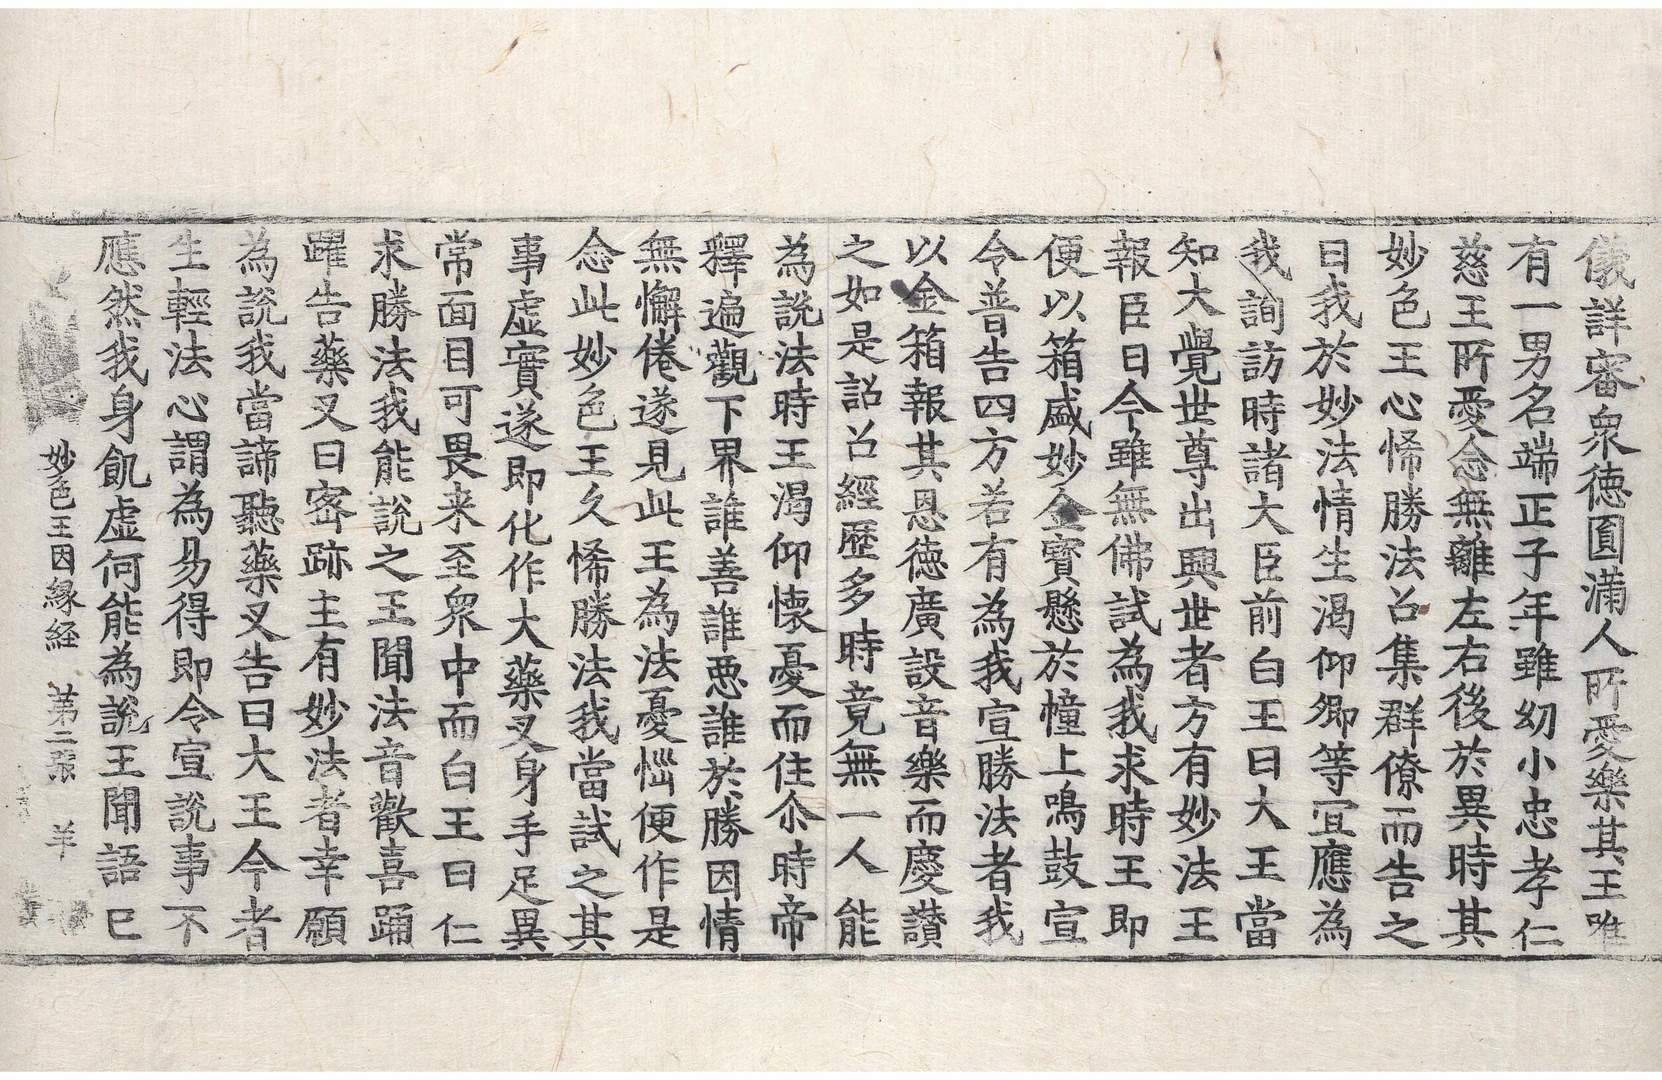 儀詳審衆徳圓滿人所愛樂其王唯
有一男名端正子年雖幼小忠孝仁
慈王所愛念無離左右後於異時其
妙色王心悕勝法召集群僚而告之
曰我於妙法情生渴仰卿等宜應為
我詢訪時諸大臣前白王曰大王當
知大覺世尊出興世者方有妙法王
報臣曰今雖無佛試為我求時王即
便以箱盛妙金寶懸於幢上鳴鼓宣
令普告四方若有為我宣勝法者我
以金箱報其恩德廣設音樂而慶讃
之如是詔召經歷多時竟無一人能
為說法時王渴仰懷憂而住尒時帝
釋遍觀下界誰善誰惡誰於勝因情
無懈倦遂見此王為法憂惱便作是
念此妙色王久悕勝法我當試之其
事虛實遂即化作大藥叉身手足異
常面目可畏来至衆中而白王曰仁
求勝法我能說之王聞法音歡喜踊
躍告藥叉曰密跡主有妙法者幸願
為說我當諦聽藥叉告曰大王今者
生輕法心謂為易得即令宣說事不
應然我身飢虛何能為說王聞語已
妙色王因縁経 第二張 羊